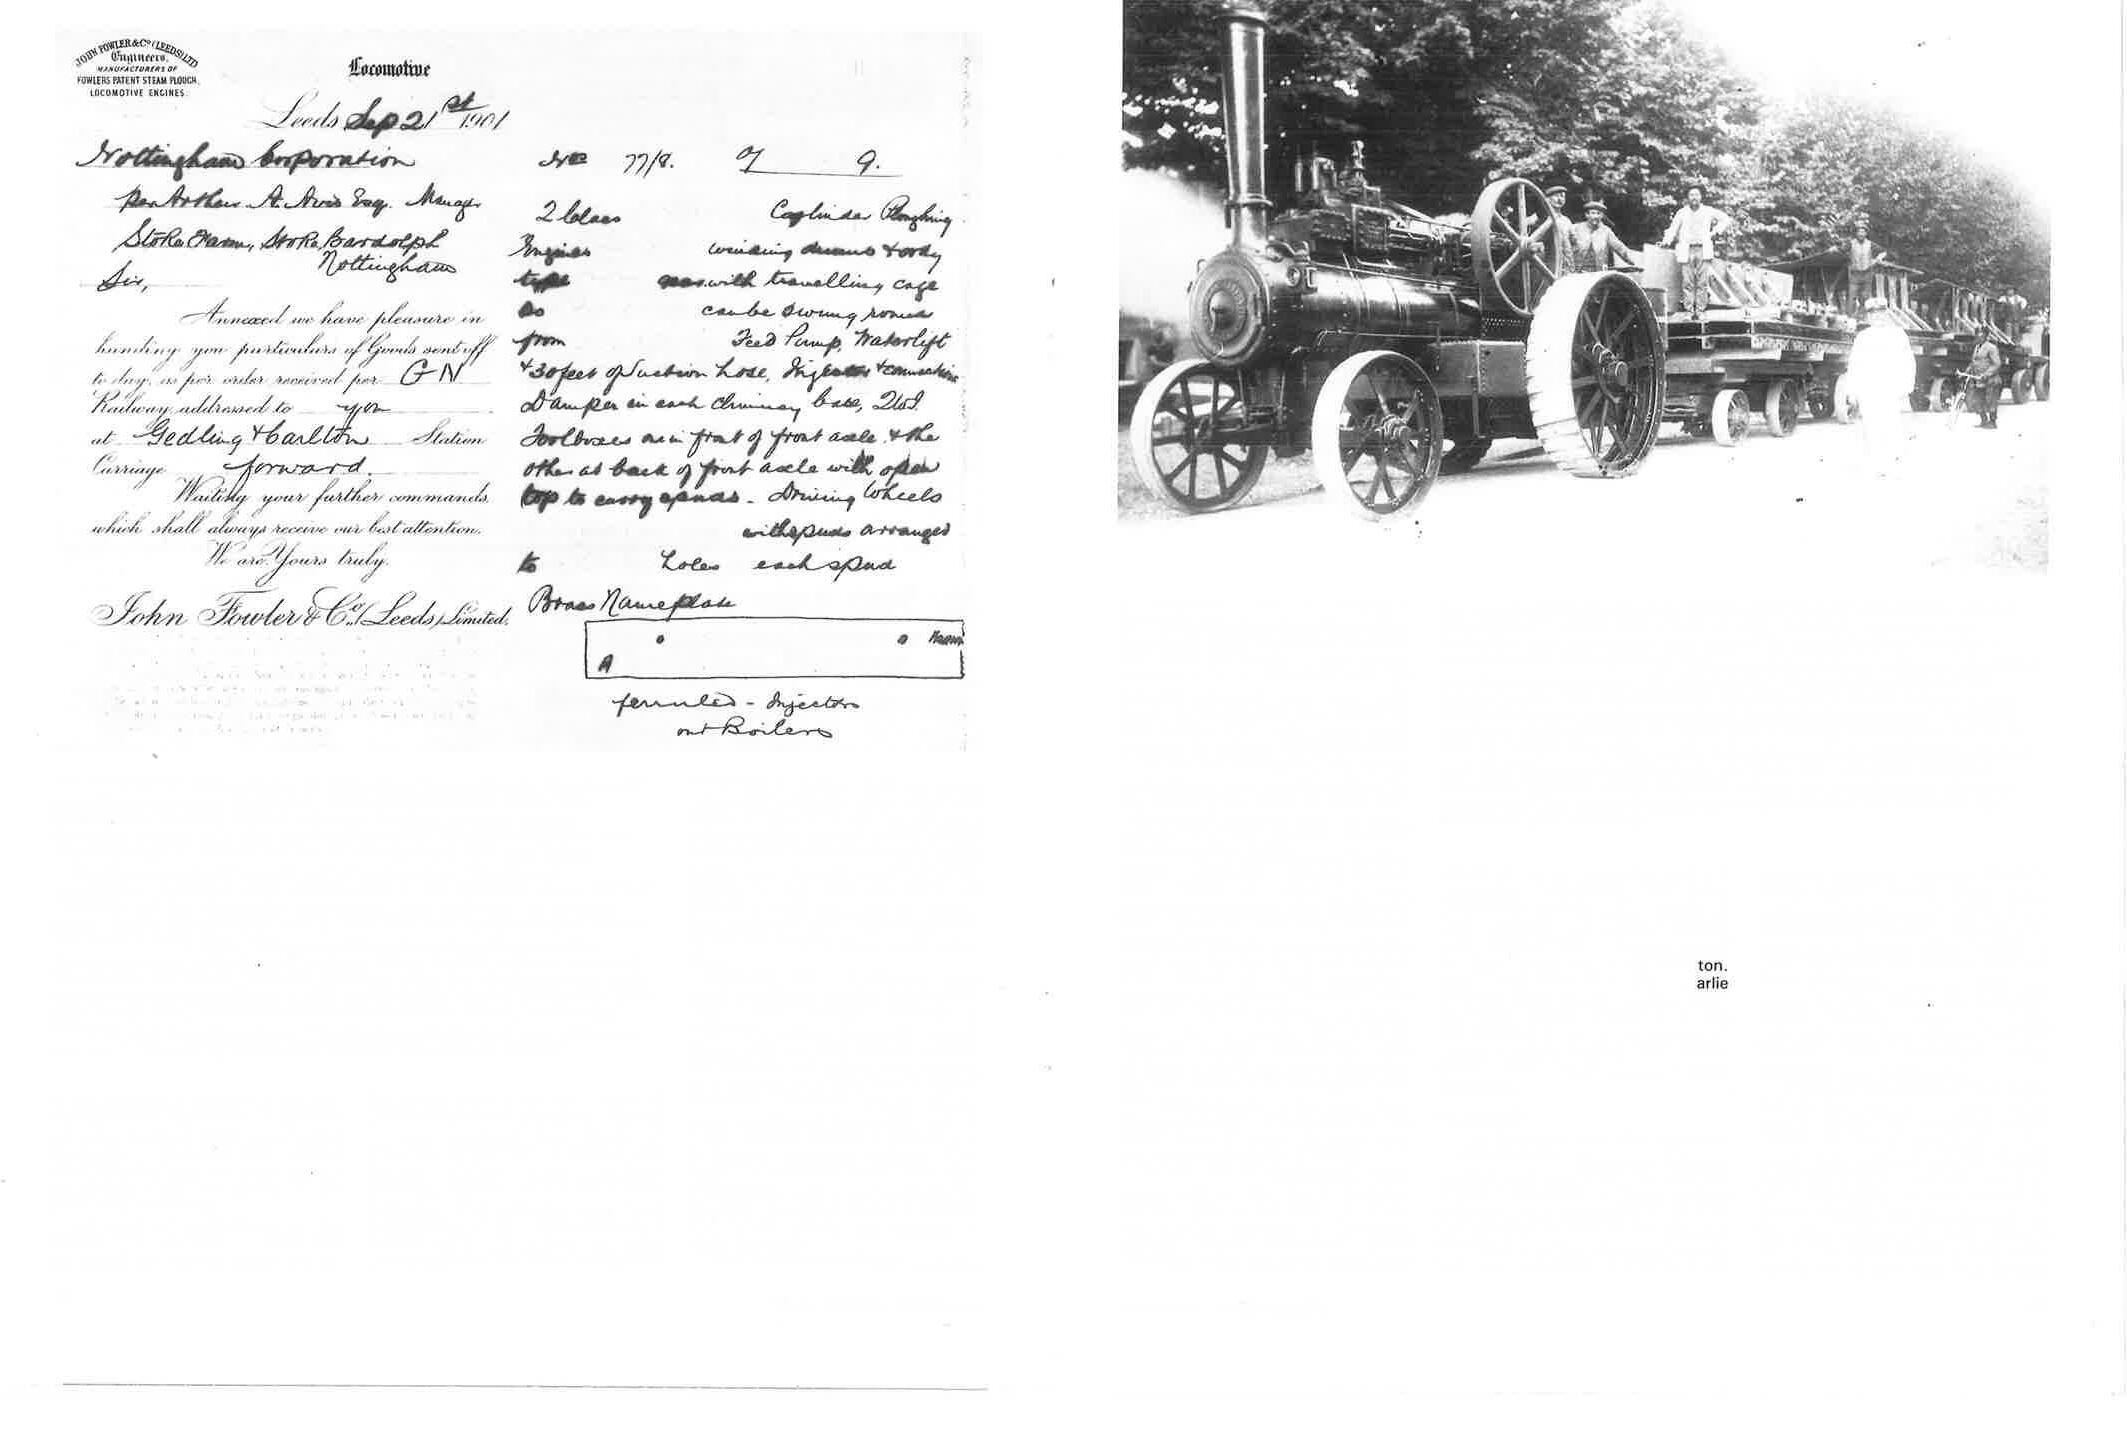 JOHN FOWLER & Co (LEEDS) LTD
Engineers,
MANUFACTURERS OF
FOWLERS PATENT STEAM PLOUGH,
LOCOMOTIVE ENGINES.
Locomotive
Leeds Sep 21st 1901
Nottingham Corporation
per Arthur A. Avis Esq. Manager
Stoke Farm, Stoke Bardolph
Nottingham
Sir,
Annexed we have pleasure in
handing you particulars of Goods sent off
to day, as per order received per GN
Railway addressed to you
at Gedling & Carlton Station
Carriage forward.
Waiting your further commands,
which shall always receive our best attention.
We are, Yours truly,
John Fowler & Co. (Leeds) Limited.
Nos 77/8. 9.
2 Cylinder Ploughing
Engines winding drums &
type with travelling cage
so can be swung round
from Feed Pump, Waterlift
& 30 feet of Suction hose, Injector &
Damper in each chimney base, 2
Toolboxes one in front of front axle & the
other at back of front axle with open
top to carry spuds - Driving Wheels
with spuds arranged
to holes each spud
Brass Nameplate
A
ferruled - Injectors
on Boilers
ton.
arlie